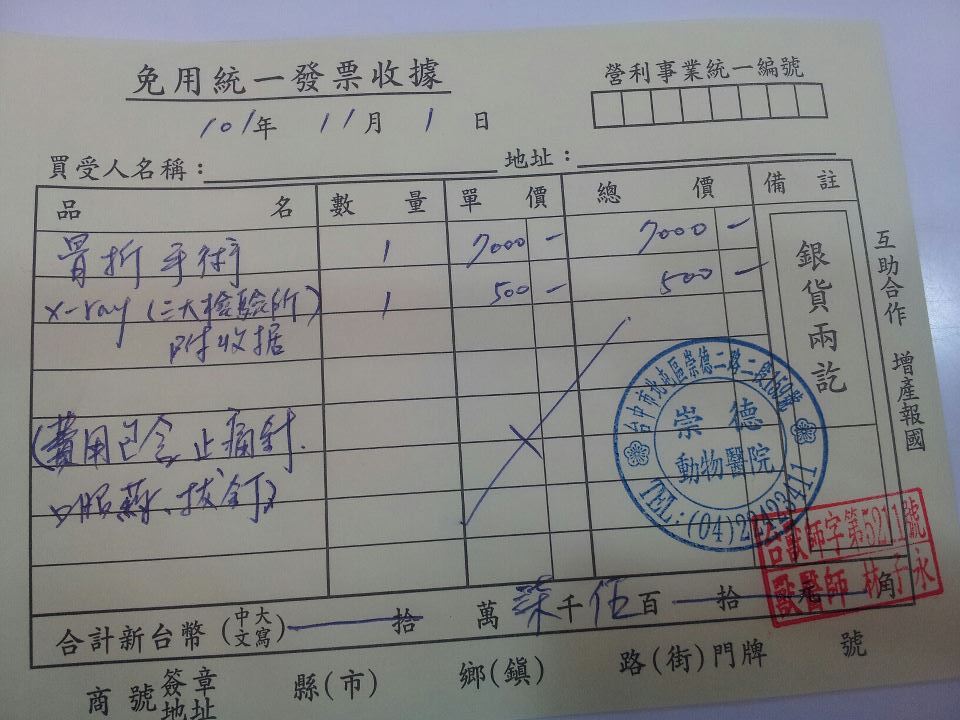 免用統一發票收據
營利事業統一編號
101年 11月 1日
買受人名稱： 地址：
品名 數量 單價 總價 備註
骨折手術 1 7000 — 7000 —
x-ray (三大檢驗所) 1 500 — 500 —
附收据
(費用已含止痛針.
口服藥、拔釘)
銀貨兩訖
互助合作 增產報國
台中市北屯區崇德二路二段
崇德
動物醫院
TEL:(04)22423411
獸師字第5211號
獸醫師 林子永
合計新台幣(中文大寫) 拾 萬 柒千 伍百 拾 元 角
商號簽章地址 縣(市) 鄉(鎮) 路(街)門牌 號